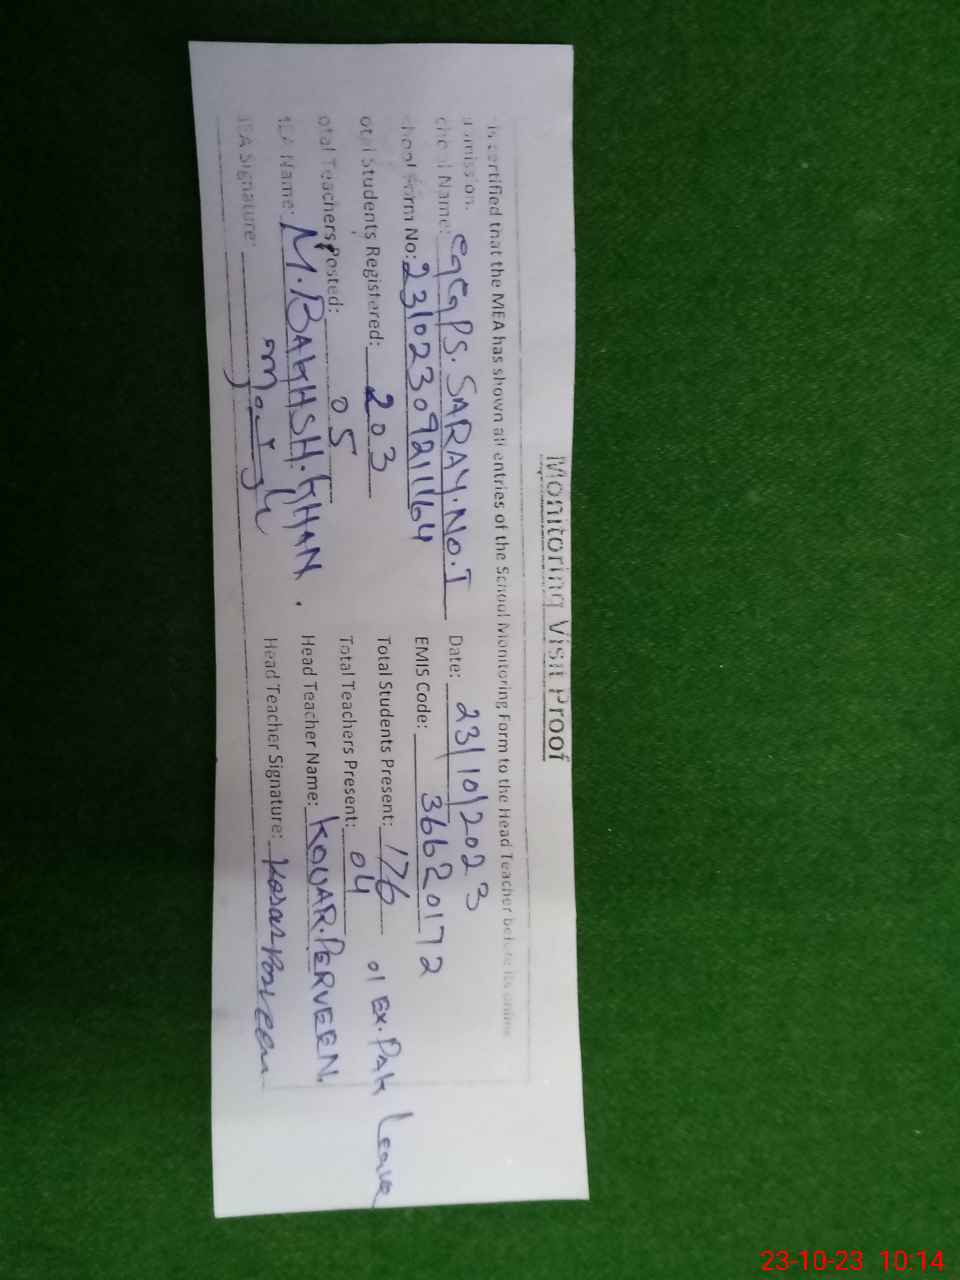 Monitoring Visit Proof
is certified that the MEA has shown all entries of the School Monitoring Form to the Head Teacher before its online
mission.
School Name: GGPS. SARAY. No. I Date: 23/10/2023
School Form No: 23102309211164 EMIS Code: 36620172
Total Students Registered: 203 Total Students Present: 176
Total Teachers Posted: 05 Total Teachers Present: 04 01 EX. PAK Leave
MEA Name: M. BAKHSH. KHAN. Head Teacher Name: KOUAR. PERVEEN.
MEA Signature: Head Teacher Signature: Kosar Parveen
23-10-23 10:14